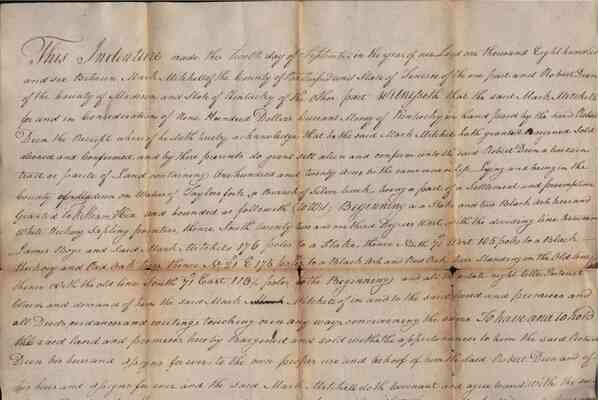 This Indenture made the tenth day of September in the year of our Lord one thousand Eight hundred
and six Between Mark Mitchell of the County of and State of of the one part and Robert Dun
of the County of Madison and State of Kentucky of the Other part Witnesseth that the said Mark Mitchell
for and in Consideration of Nine Hundred Dollars Currant Money of Kentucky in hand payed by the said Robert
Deen the Receipt where of he doth hereby acknowledge that he the said Mark Mitchell hath granted Sold
and Confirmed and by these presents do grant sell alien and confirm unto the said Robert Deen a certain
tract or parcle of Land containing One hundred and twenty Acres be the same more or less Lying and being in the
County of Madison on Waters of Taylors fork a Branch of Silver Creek being a part of a Settlement and preemption
Granted to and bounded as followeth (to Wit) Beginning a a Stake and two Black Ash trees and
White Hickory Sapling pointers, thence South twenty two and one third Degrees West with the dividing line between
James Boys and Said Mark Mitchels 176 poles to a Stake, thence North 71 West 105 poles to a Black
Hickory and Red Oak trees thence 21 E 176 poles to a Black Ash and Red Oak trees Standing on the Old line
thence with the old line South 71 East 113½ poles to the Beginning and all the estate right title Intrust
Claim and demand of him the said Mark Mitchell of in and to the said land and premises and
all Deeds evidences and writings touching or in any ways concerning the same To have and to hold
the said land and premises hereby Bargained and sold with the appurtenances to him the said Robert
Deen his heirs and assigns forever to the own proper use and behoof of him the said Robert Deen and of
his heirs and assigns for ever and the said Mark Mitchell doth covenant and agree to and with the said